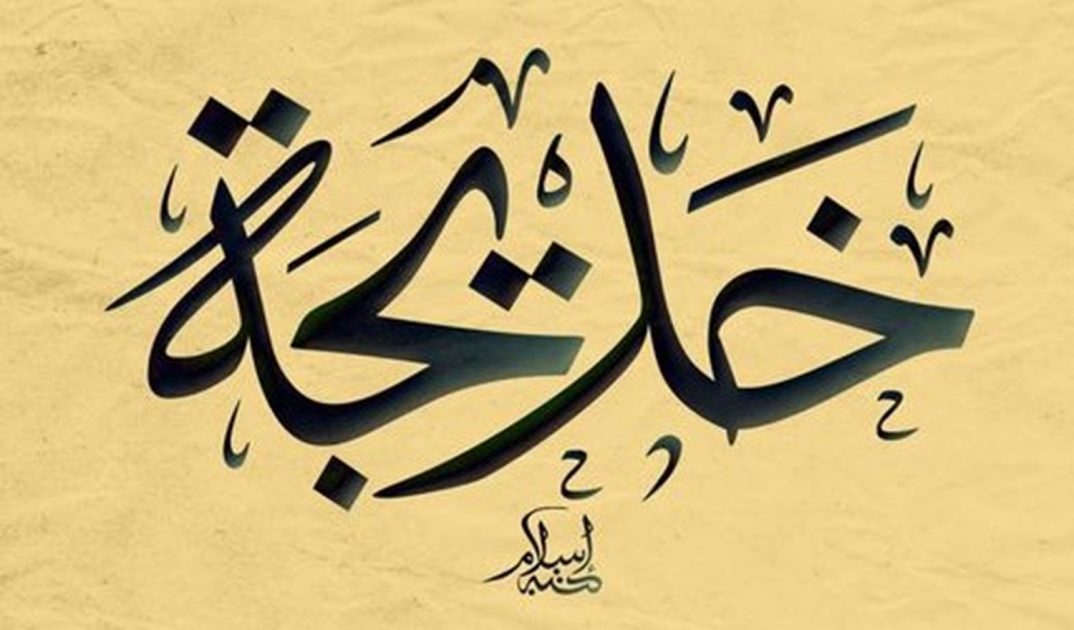 خديجة
كتبه إسلام